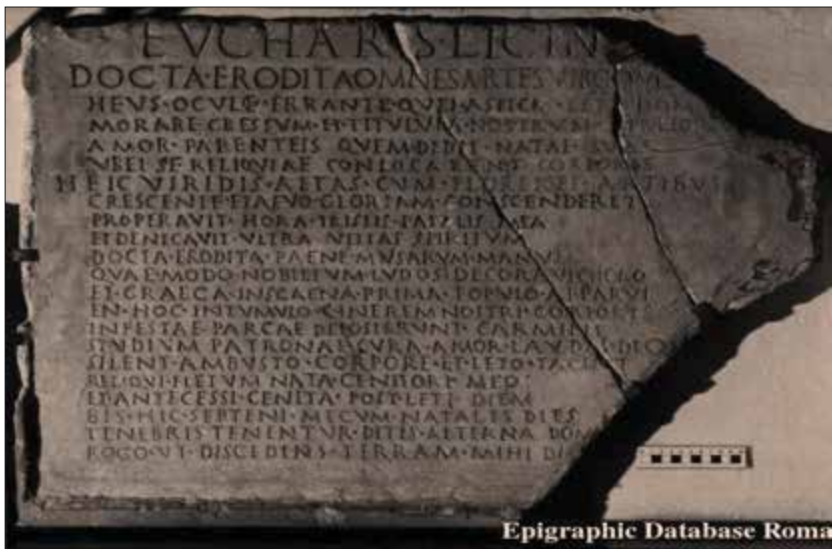 EVCHARIS·LICIN
DOCTA·ERODITA OMNES ARTES VIRGO
HEVS·OCVLO·ERRANTE·QVEI ASPICIS LETI DOM
MORARE GRESSVM·ET·TITVLVM·NOSTRVM
AMOR·PARENTEIS QVEM DEDIT NATAE SVAE
VBEI·SE RELIQVIAE CONLOCARENT CORPORIS
HEIC VIRIDIS·AETAS·CVM·FLORERET·ARTIBVS
CRESCENTE·ET AEVO GLORIAM·CONSCENDERET
PROPERAVIT·HORA·TRISTIS·FATALIS·MEA
ET DENEGAVIT·VLTRA·VEITAE SPIRITVM
DOCTA·ERODITA·PAENE·MVSARVM·MANV
QVAE·MODO·NOBILIVM·LVDOS DECORAVI CHORO
ET·GRAECA·IN SCAENA·PRIMA·POPVLO·APPARVI
EN·HOC·IN TVMVLO·CINEREM NOSTRI·CORPORI
INFESTAE·PARCAE DEPOSIERVNT·CARMINE
STVDIVM PATRONAE CVRA·AMOR LAVDES·DECV
SILENT·AMBVSTO·CORPORE·ET·LETO·TACENT
RELIQVI·FLETVM NATA·GENITORI MEO
ET ANTECESSI·GENITA·POST·LETI·DIEM
BIS·HIC·SEPTENI·MECVM·NATALES DIES
TENEBRIS TENENTVR·DITIS·AETERNA DOM
ROGO·VT·DISCEDENS·TERRAM·MIHI DI
Epigraphic Database Roma